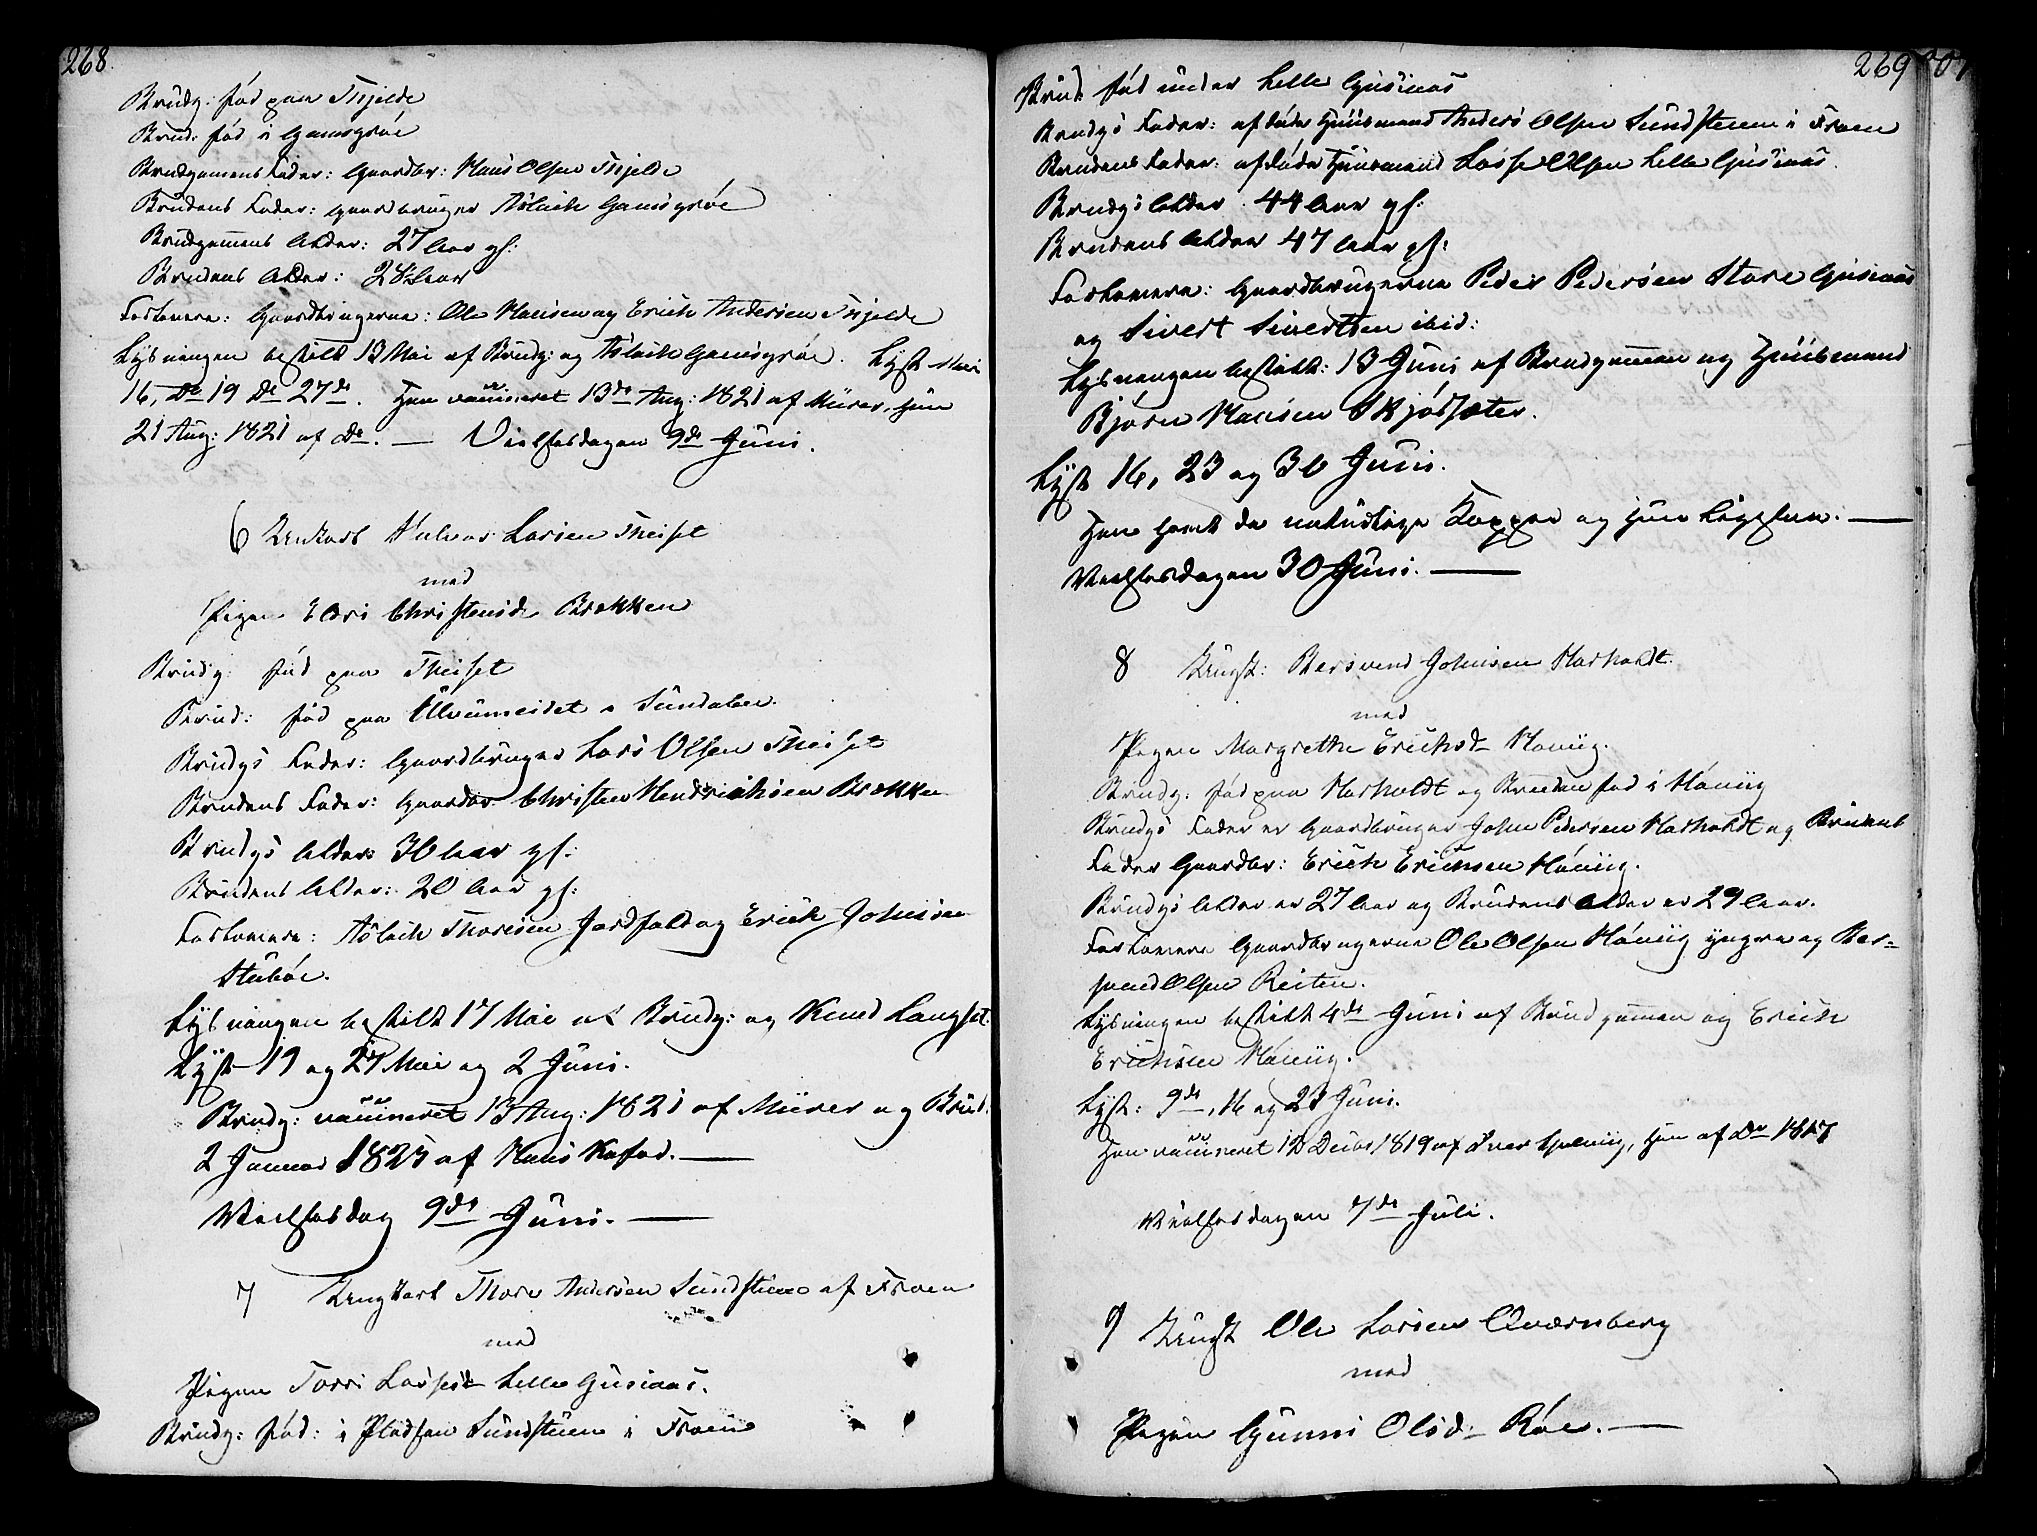 268
Brudg: fód paa Thjelde
Brud: fód i Gamsgróe
Brudgomens Fader: Gaardbr: Hans Olsen Thjelde
Brudens Fader: Gaardbruger Aslach Gamsgróe
Brudgomens Alder: 27 Aar gl:
Brudens Alder: 28 Aar
Forlovere: Gaardbrugerne: Ole Hansen og Erich Andersen Thjelde
Lysningen bestilt 13 Mai af Brudg: og Aslach Gamsgróe. Lyst Mai
16, do 19 do 27de. Han vaccineret 13de Aug: 1821 af Mürer, hun
21 Aug: 1821 af do. — Vielsesdagen 9de Juni.
6 Unkarl Halvor Larsen Theiset
med
Pigen Eldri Christensd. Brækken
Brudg: fód paa Theiset
Brud: fód paa Ulvumeidet i Sundalen.
Brudgs Fader: Gaardbruger Lars Olsen Theiset
Brudens Fader: Gaardbr Christen Hendrichsen Brækken
Brudgs Alder 30 Aar gl:
Brudens Alder: 20 Aar gl:
Forlovere: Aslach Thoresen Jordfald og Erich Johnsen
Stubóe.
Lysningen bestilt 17 Mai af Brudg: og Knud Langset.
Lyst 19 og 27 Mai og 2 Juni.
Brudg: vaccineret 13 Aug: 1821 af Mürer og Brud.
2 Januar 1825 af Hans Kafod. —
Vielsesdag 9de Juni. —
7 Ungkarl Thore Andersen Sundstuen af Froen
med
Pigen Torri Lassesd. Lille Gusiaas.
Brudg: fód: i Pladsen Sundstuen i Froen
269
Brud: fód under Lille Gusiaas
Brudgs Fader: afdóde Huusmand Anders Olsen Sundstuen i Froen
Brudens Fader: afdóde Huusmand Lasse Olsen Lille Gusiaas.
Brudgs Alder 44 Aar gl:
Brudens Alder 47 Aar gl:
Forlovere: Gaardbrugerne Peder Pedersen Store Gusiaas
og Sivert Sivertsen ibid:
Lysningen bestilt: 13 Juni af Brudgommen og Huusmand
Bjórn Hansen Skjósæter.
Lyst 16, 23 og 30 Juni.
Han havt de naturlige Kopper og hun ligesaa. —
Vielsesdagen 30 Juni. —
8 Ungk: Bersvend Johnsen Harholdt.
med
Pigen Margrethe Erichsd. Hániig.
Brudg: fód paa Harholdt og Bruden fód i Hániig
Brudgs Fader er Gaardbruger John Pedersen Harholdt og Brudens
Fader Gaardbr: Erich Erichsen Hániig.
Brudgs Alder er 27 Aar og Brudens Alder er 29 Aar.
Forlovere Gaardbrugerne Ole Olsen Hániig yngre og Ber-
svend Olsen Reiten.
Lysningen bestilt 4de Juni af Brudgommen og Erich
Erichsen Hániig.
Lyst: 9de, 16 og 23 Juni.
Han vaccineret 12 Decbr 1819 af Iver, hun af do 1817
Vielsesdagen 7de Juli.
9 Ungk Ole Larsen Qværnberg
med
Pigen Gunni Olsd. Róe. —